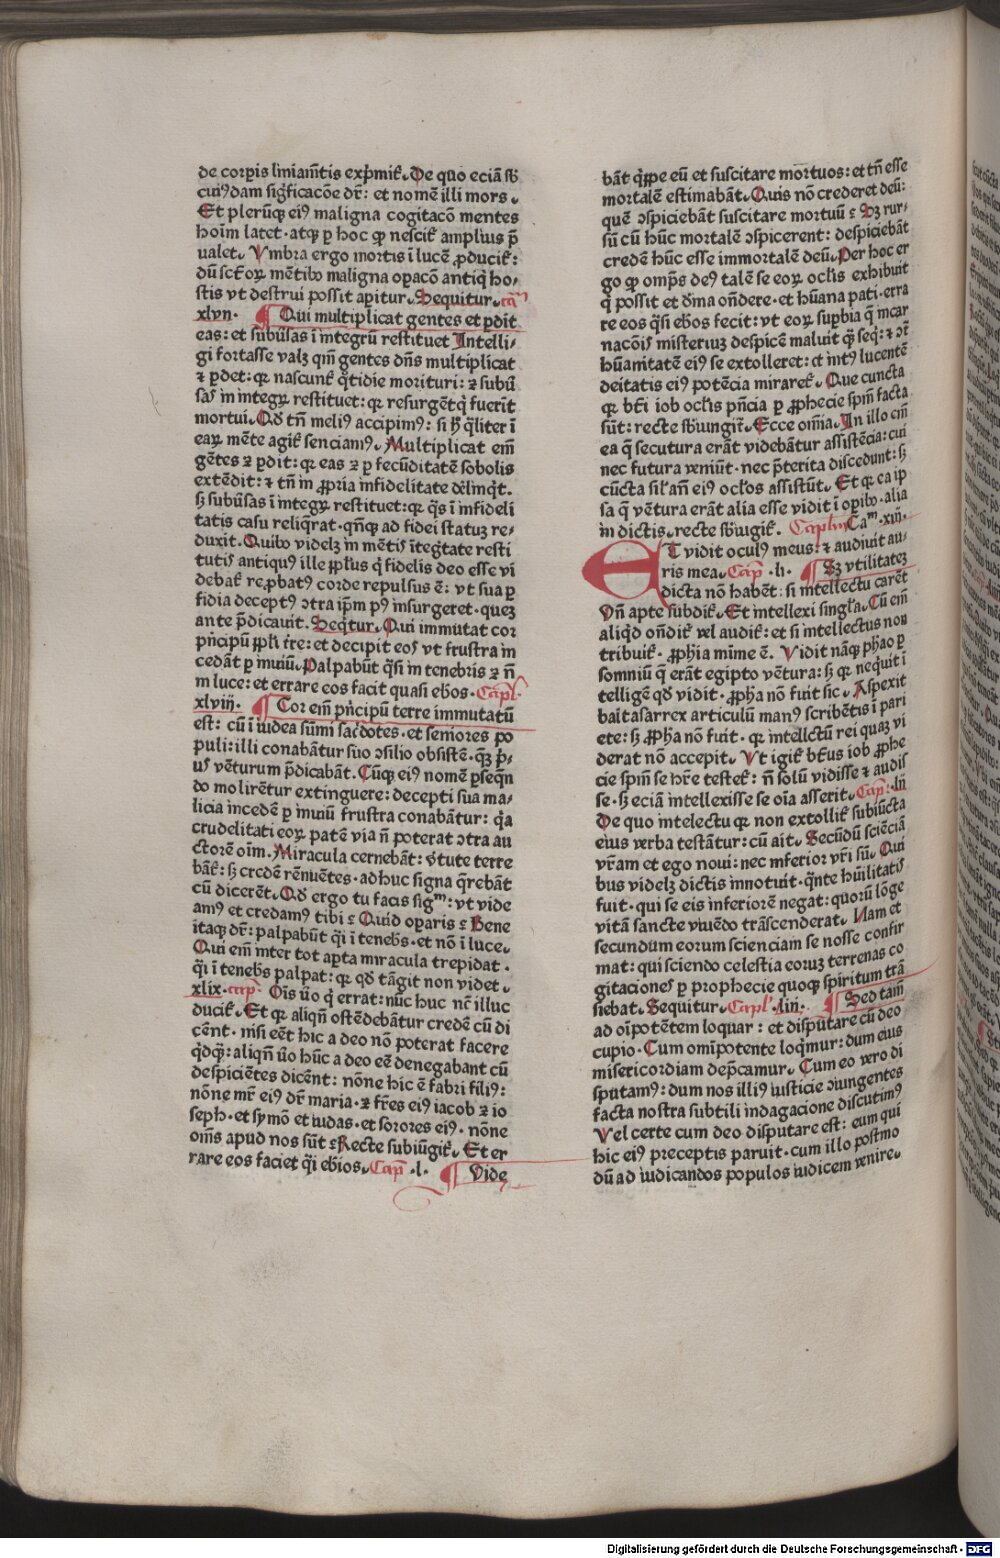 de corpis liniamētis exp̄mit̄. De quo eciā sb̄
cuiꝰdam sigīficacōe dr̄: et nomē illi mors.
Et plerūqȝ eiꝰ maligna cogitacō mentes
hoīm latet. atqȝ p hoc qꝫ nescit̄ ampliꝰ p̄
ualet. Vmbra ergo mortis ī lucē ꝓducit̄:
dū sctōꝝ mētibꝰ maligna opacō antiqͥ ho-
stis vt destrui possit apitur. Sequitur. ca
xlvii. ¶ Qui multiplicat gentes et pdit
eas: et subūsas ī integrū restituet Intelli-
gi fortasse valȝ qm̄ gentes dn̄s multiplicat
⁊ pdet: qꝛ nascunt̄ qͣtidie morituri: ⁊ subū
sas in integꝝ restituet: qꝛ resurgēt qͥ fuerīt
mortui. Qd̓ tn̄ meliꝰ accipimꝰ: si hͦ qͣliter ī
eaꝝ mēte agit̄ senciamꝰ. Multiplicat em̄
gētes ⁊ pdit: qꝛ eas ⁊ p fecūditatē sobolis
extēdit: ⁊ tn̄ in ꝓpria infidelitate delinqͥt.
sȝ subūsas ī integꝝ restituet: qꝛ qͦs ī infideli
tatis casu reliqͥrat. qn̄qȝ ad fidei statuȝ re-
duxit. Quibꝰ videlȝ in mētis ītegtate resti
tutis antiquꝰ ille pplus qͥ fidelis deo esse vi
debat̄ reprobatꝰ corde repulsus ē: vt sua p
fidia deceptꝰ ↄtra ipm̄ pꝰ insurgeret. queȝ
ante p̄dicauit. Seqͥtur. Qui immutat cor
pͥncipū ppl̓i tr̄e: et decipit eos vt frustra in
cedāt p inuiū. Palpabūt qͣsi in tenebris ⁊ n̄
in luce: et errare eos facit quasi ebͦos. Capl̓
xlviii. ¶ Cor em̄ pͥncipū terre immutatū
est: cū ī iudea sūmi sac̓dotes. et seniores po
puli: illi conabātur suo ↄsilio obsistē. quȝ pͥ-
us vēturum p̄dicabāt. Cūqȝ eiꝰ nomē pseqn̄
do molirētur extinguere: decepti sua ma-
licia incedē p inuiū frustra conabātur: qͣ
crudelitati eoꝝ patē via n̄ poterat ↄtra au
ctorē oīm. Miracula cernebāt: v̓tute terre
bāt̄: sȝ cредē rēnuētes. adhuc signa qͣrebāt
cū dicerēt. Qd̓ ergo tu facis sigͫ: vt vide
amꝰ et credamꝰ tibi? Quid oparis? Bene
itaqȝ dr̄: palpabūt qͣi ī tenebs. et nō ī luce.
Qui em̄ inter tot apta miracula trepidat.
qͣi ī tenebs palpat: qꝛ qd̓ tāgit non videt.
xlix. cap. Oīs ūo qͥ errat: nūc huc nē illuc
ducit̄. Et qꝛ aliqn̄ ostēdebātur credē cū di
cēnt. nisi eēt hic a deo nō poterat facere
qͥdqȝ: aliqn̄ ūo hūc a deo eē denegabant cū
despiciētes dicēnt: nōne hic ē fabri filiꝰ:
nōne mr̄ eiꝰ dr̄ maria. ⁊ fr̄es eiꝰ iacob ⁊ io
seph. et symō et iudas. et sorores eiꝰ. nōne
om̄s apud nos sūt? Recte subiūgit̄. Et er
rare eos faciet qͣi ebͥos. Cap .l. ¶ Vide
bāt qͥppe eū et suscitare mortuos: et tn̄ esse
mortalē estimabāt. Quis nō crederet deū:
quē ↄspiciebāt suscitare mortuū? Sȝ rur-
sū cū hūc mortalē ↄspicerent: despiciebāt
credē hūc esse immortalē deū. Per hoc er
go qꝫ omps deꝰ talē se eoꝝ oclis exhibuit
qͥ possit et dīna ondere. et hūana pati. erra
re eos qͣsi ebͦos fecit: vt eoꝝ supbia qͥ incar
nacōis misteriuȝ despicē maluit qͣ seqͥ: ⁊ ↄtͣ
hūanitatē eiꝰ se extolleret: et intꝰ lucentē
deitatis eiꝰ potēcia miraret̄. Que cuncta
qꝛ bt̄i iob oclis pn̄cia p ꝓphecie spm̄ facta
sūt: recte sbiungit̄. Ecce om̄ia. In illo em̄
ea qͣ secutura erāt videbātur assistēcia: cui
nec futura veniūt. nec pͥterita discedunt: sȝ
cūcta sil̓ an̄ eiꝰ ocl̓os assistūt. Et qꝛ ea ip
sa qͣ vētura erāt alia esse vidit ī opibꝰ. alia
in dictis. recte sbiūgit̄. Caplm Caͫ. xiii.
ET vidit oculꝰ meus: ⁊ audiuit au-
ris mea. Cap .li. ¶ Sȝ vtilitateȝ
dicta nō habēt: si intellectu carēt
Vn̄ apte subdit̄. Et intellexi singl̓a. Cū em̄
aliqͥd ondit̄ vel audit̄: et si intellectus non
tribuit̄. ꝓphia mīme ē. Vidit nāqȝ phao p
somniū qͣ erāt egipto vētura: sȝ qꝛ nequit ī
telligē qd̓ vidit. ꝓpha nō fuit sic. Aspexit
baltasarrex articulū manꝰ scribētis ī pari
ete: sȝ ꝓpha nō fuit. qꝛ intellectū rei quaȝ vi
derat nō accepit. Vt igit̄ bt̄us iob ꝓphe
cie spm̄ se hr̄e testet̄: n̄ solū vidisse ⁊ audis
se. sȝ eciā intellexisse se oīa asserit. Cap. lii
De quo intelectu qꝛ non extollit̄ subiūcta
eius verba testātur: cū ait. Secūdū sciēciā
vr̄am et ego noui: nec inferior vr̄i sū. Qui
bus videlȝ dictis innotuit. qͣnte hūilitatis
fuit. qui se eis inferiorē negat: quorū lōge
vitā sancte viuēdo trāscenderat. Nam et
secundum eorum scienciam se nosse confir
mat: qui sciendo celestia eoruȝ terrenas co
gitaciones p prophecie quoqȝ spiritum trā
siebat. Sequitur. Capl̓. liii. ¶ Sed tam̄
ad oīpotētem loquar: et disputare cū deo
cupio. Cum omīpotente loqͥmur: dum eius
misericordiam dep̄camur. Cum eo vero di
sputamꝰ: dum nos illiꝰ iusticie ↄiungentes
facta nostra subtili indagacione discutimꝰ
Vel certe cum deo disputare est: eum qui
hic eiꝰ preceptis paruit. cum illo postmo
dū ad iudicandos populos iudicem venire.
Digitalisierung gefördert durch die Deutsche Forschungsgemeinschaft - DFG